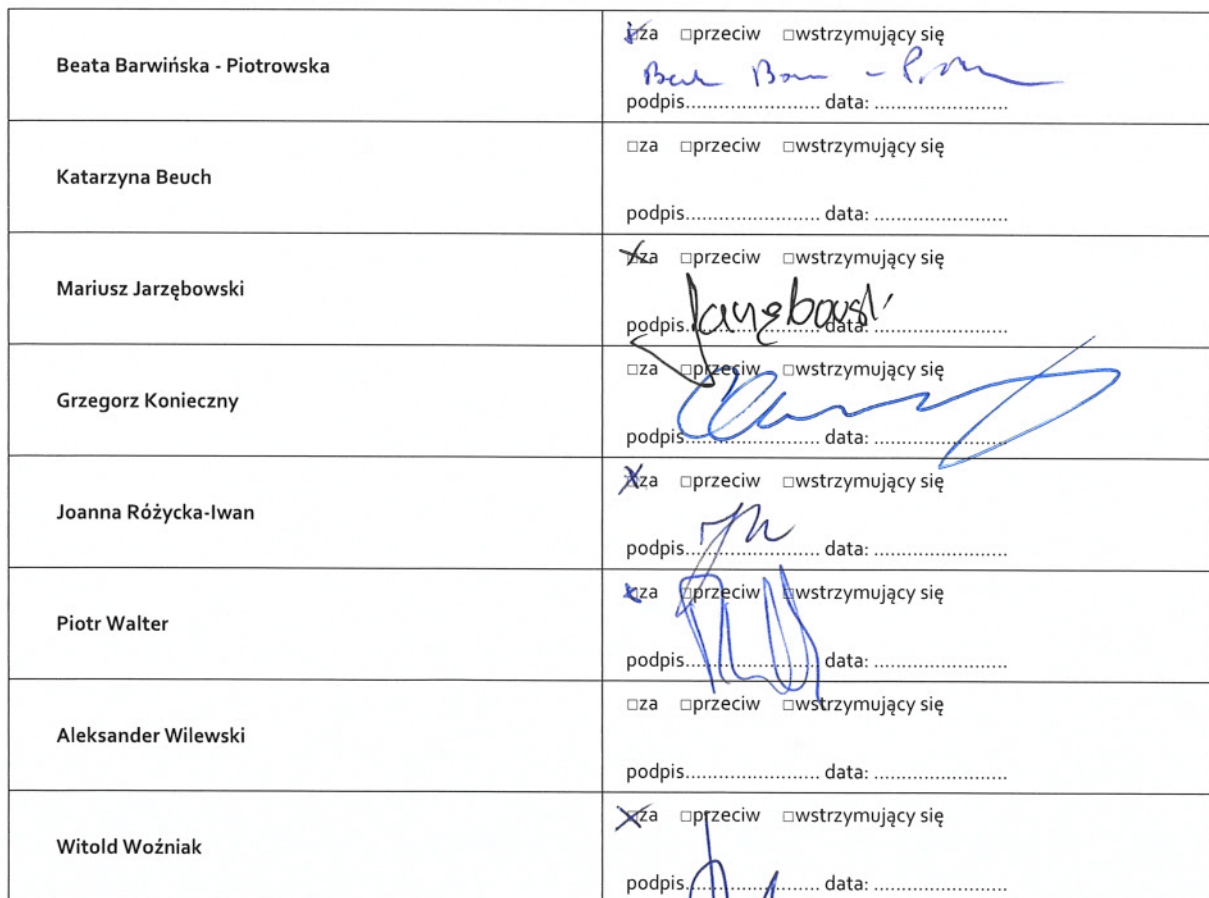 Beata Barwińska - Piotrowska
□za □przeciw □wstrzymujący się
podpis........................ data: ........................
Katarzyna Beuch
□za □przeciw □wstrzymujący się
podpis........................ data: ........................
Mariusz Jarzębowski
□za □przeciw □wstrzymujący się
Jarzębowski
podpis........................ data: ........................
Grzegorz Konieczny
□za □przeciw □wstrzymujący się
podpis........................ data: ........................
Joanna Różycka-Iwan
□za □przeciw □wstrzymujący się
podpis........................ data: ........................
Piotr Walter
□za □przeciw □wstrzymujący się
podpis........................ data: ........................
Aleksander Wilewski
□za □przeciw □wstrzymujący się
podpis........................ data: ........................
Witold Woźniak
□za □przeciw □wstrzymujący się
podpis........................ data: ........................